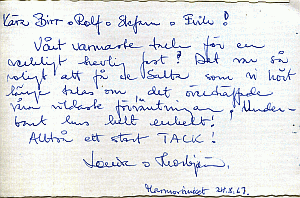 Kära Sirr o Rolf o Stefan o Frille!
Vårt varmaste tack för en
väldigt härlig fest! Det var så
roligt att få de Salta som vi hört
länge talas om det överträffade
våra vildaste förväntningar! Under-
bart hus helt enkelt!
Alltså ett stort TACK!
Lovisa o Thorbjörn.
Marmorbruket 24.8.67.